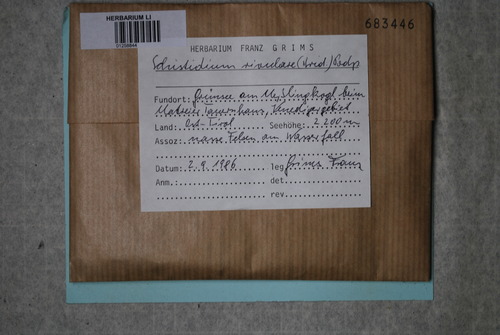 683446
HERBARIUM LI
01256644
HERBARIUM FRANZ GRIMS
Schistidium rivulare (Brid.) Podp
Fundort: Grünsee am Meßlingkogl beim
Matreier Tauernhaus, Venedigergebiet
Land: Ost-Tirol Seehöhe: 2 200 m
Assoz: nasse Felsen am Wasserfall
Datum: 2. 9. 1986 leg Grims Franz
Anm.: det
rev